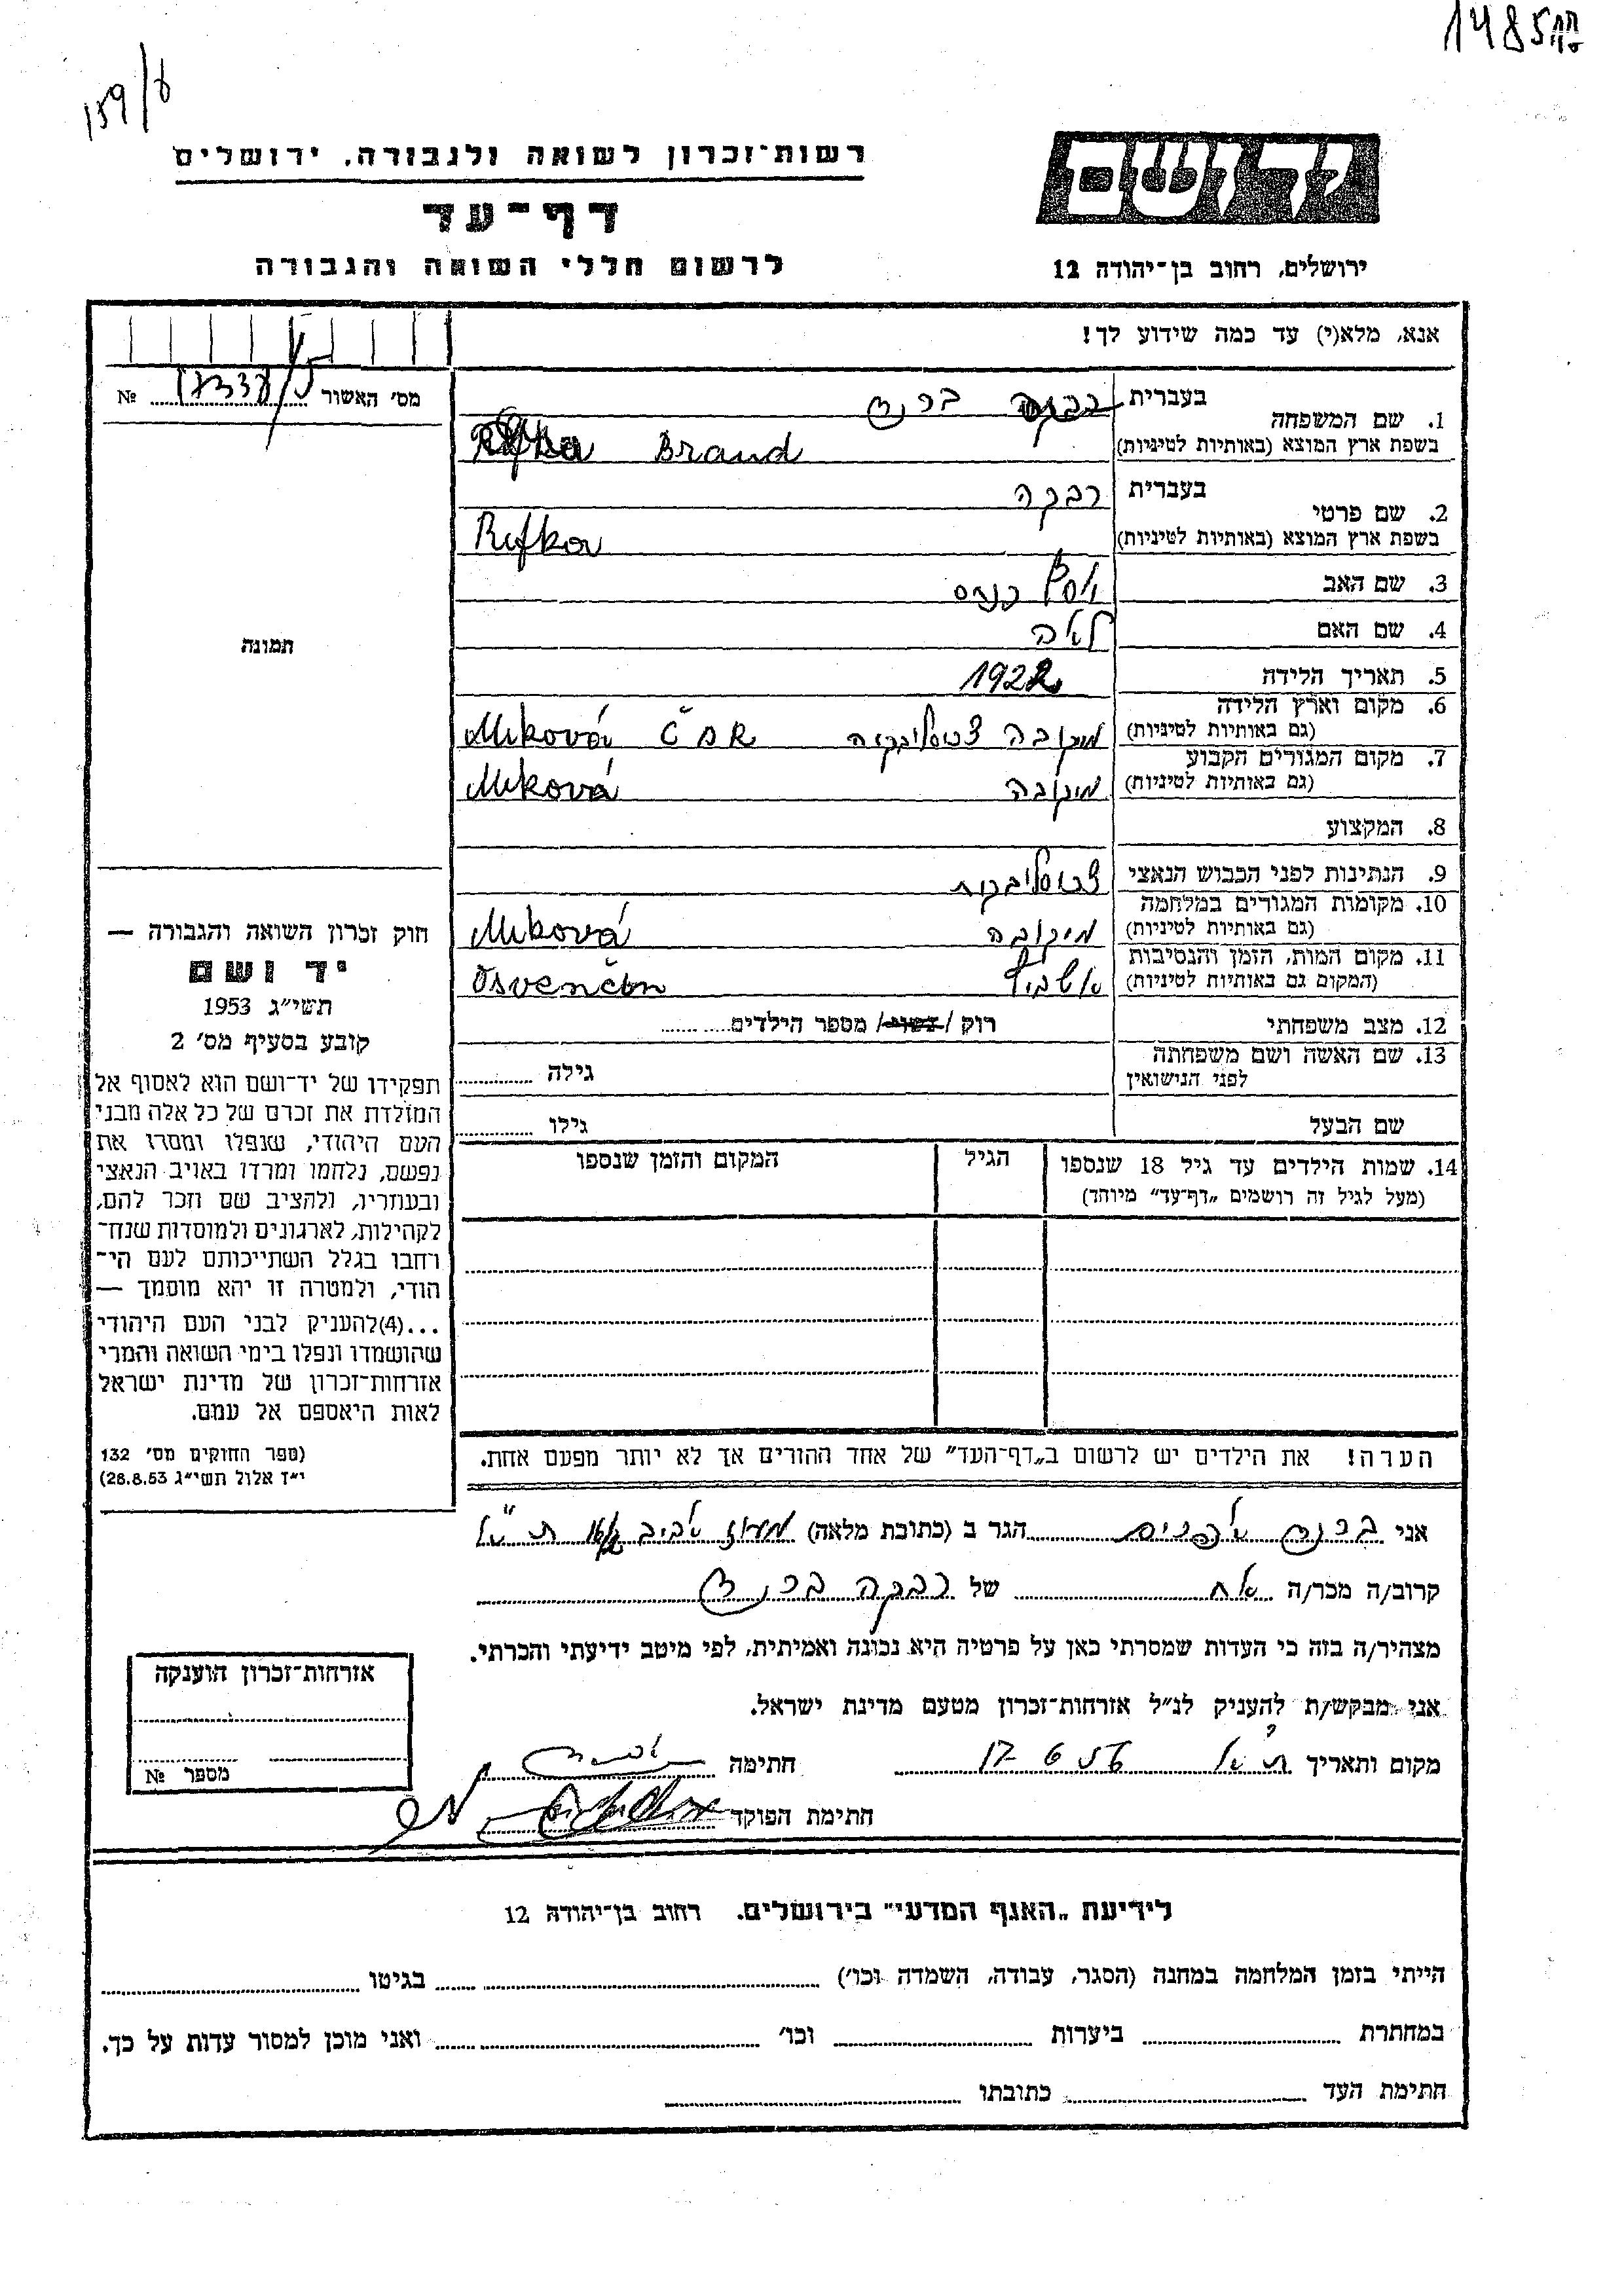 1485
159/8
רשות־זכרון לשואה ולגבורה, ירושלים
דף־עד
לרשום חללי השואה והגבורה
יד ושם
ירושלים, רחוב בן־יהודה 12
אנא, מלא(י) עד כמה שידוע לך!
מס' האשור № 17337
1. שם המשפחה
בעברית ברנד
בשפת ארץ המוצא (באותיות לטיניות) Brand
2. שם פרטי
בעברית רבקה
בשפת ארץ המוצא (באותיות לטיניות) Rifka
3. שם האב יוסף
4. שם האם לאה
5. תאריך הלידה 1922
6. מקום וארץ הלידה
(גם באותיות לטיניות) מיקובה Miková ČSR
7. מקום המגורים הקבוע
(גם באותיות לטיניות) מיקובה Miková
8. המקצוע
9. הנתינות לפני הכבוש הנאצי
10. מקומות המגורים במלחמה
(גם באותיות לטיניות) מיקובה Miková
11. מקום המות, הזמן והנסיבות
(המקום גם באותיות לטיניות) אושביץ Osvenčin
12. מצב משפחתי רוק / נשוי / מספר הילדים
13. שם האשה ושם משפחתה
לפני הנישואין גילה
שם הבעל גילו
14. שמות הילדים עד גיל 18 שנספו הגיל המקום והזמן שנספו
(מעל לגיל זה רושמים „דף־עד” מיוחד)
הערה! את הילדים יש לרשום ב„דף־העד” של אחד ההורים אך לא יותר מפעם אחת.
תמונה
חוק זכרון השואה והגבורה —
יד ושם
תשי״ג 1953
קובע בסעיף מס' 2
תפקידו של יד־ושם הוא לאסוף אל
המולדת את זכרם של כל אלה מבני
העם היהודי, שנפלו ומסרו את
נפשם, נלחמו ומרדו באויב הנאצי
ובעוזריו, ולהציב שם וזכר להם,
לקהילות, לארגונים ולמוסדות שנח־
רחבו בגלל השתייכותם לעם הי־
הודי, ולמטרה זו יהא מוסמך —
...(4)להעניק לבני העם היהודי
שהושמדו ונפלו בימי השואה והמרי
אזרחות־זכרון של מדינת ישראל
לאות היאספם אל עמם.
(ספר החוקים מס' 132
י״ז אלול תשי״ג 28.8.53)
אני ברנד אפרים הגר ב (כתובת מלאה) ת״א
קרוב/ה מכר/ה אח של רבקה ברנד
מצהיר/ה בזה כי העדות שמסרתי כאן על פרטיה היא נכונה ואמיתית, לפי מיטב ידיעתי והכרתי.
אני מבקש/ת להעניק לנ״ל אזרחות־זכרון מטעם מדינת ישראל.
מקום ותאריך ת״א 17 6 חתימה
חתימת הפוקד
אזרחות־זכרון הוענקה
מספר №
לידיעת „האגף המדעי” בירושלים, רחוב בן־יהודה 12
הייתי בזמן המלחמה במחנה (הסגר, עבודה, השמדה וכו') בגיטו
במחתרת ביערות וכו' ואני מוכן למסור עדות על כך.
חתימת העד כתובתו